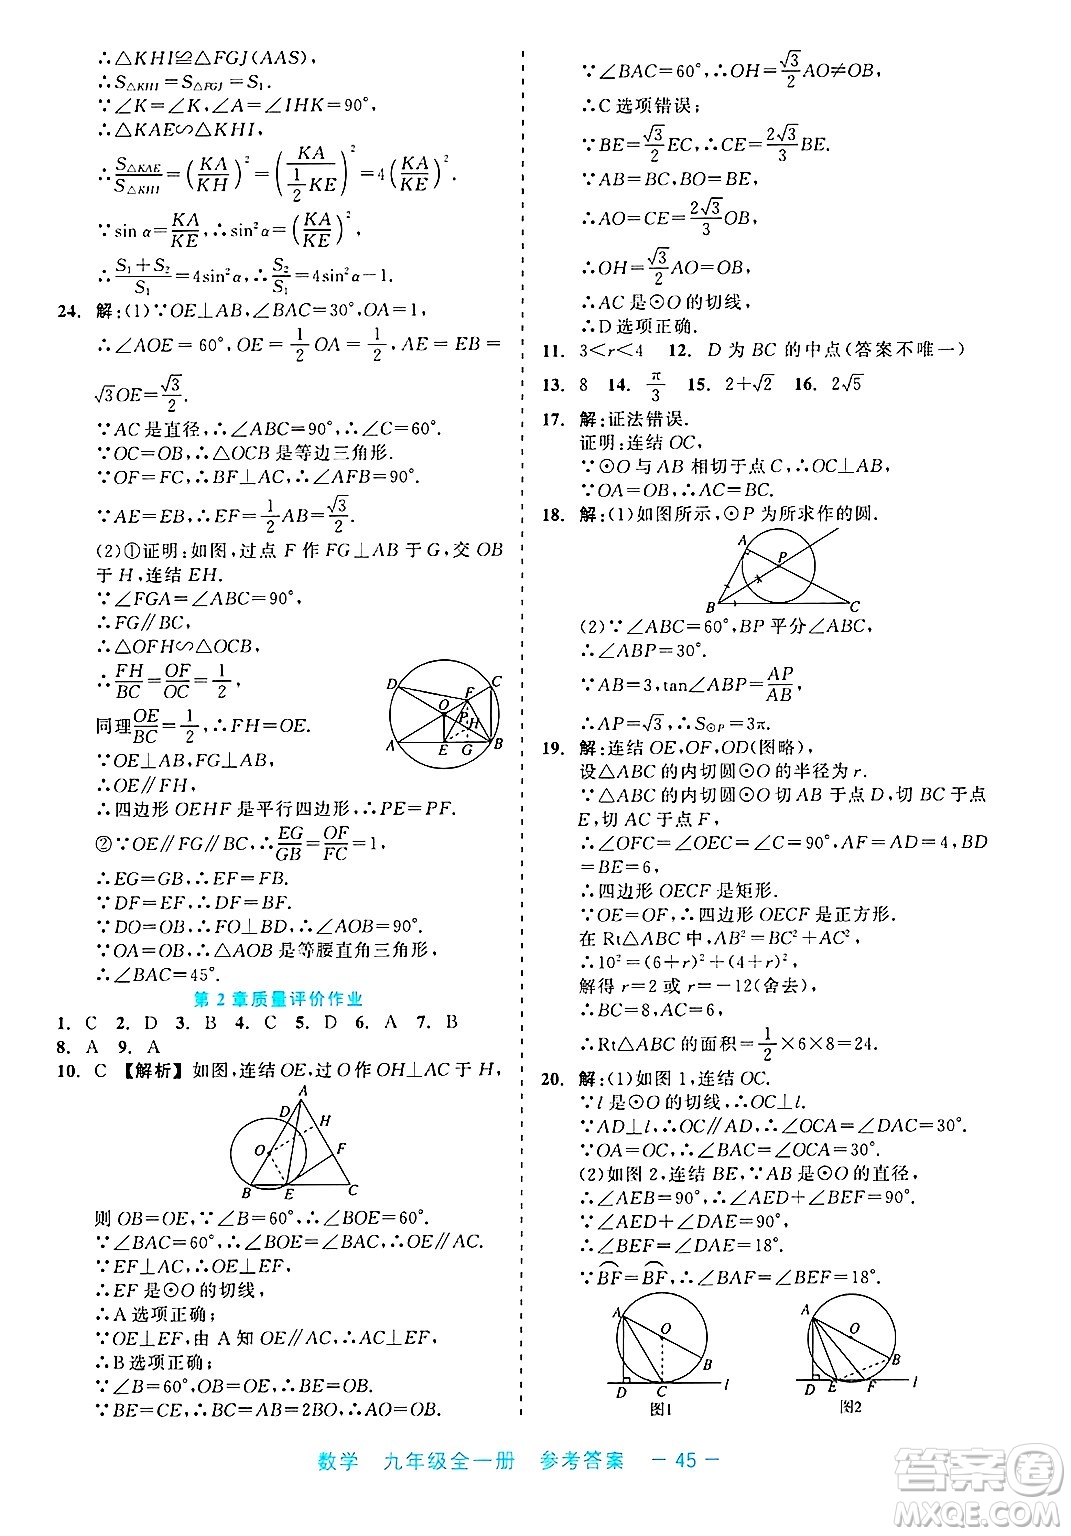 ∴△KHI≌△FGJ(AAS),
∴S△KHI=S△FGJ=S₁.
∵∠K=∠K,∠A=∠IHK=90°,
∴△KAE∽△KHI,
∴S△KAE/S△KHI=(KA/KH)²=(KA/(1/2 KE))²=4(KA/KE)².
∵sin α=KA/KE,∴sin²α=(KA/KE)²,
∴(S₁+S₂)/S₁=4sin²α,∴S₂/S₁=4sin²α-1.
24. 解:(1)∵OE⊥AB,∠BAC=30°,OA=1,
∴∠AOE=60°,OE=1/2 OA=1/2,AE=EB=
√3OE=√3/2.
∵AC是直径,∴∠ABC=90°,∴∠C=60°.
∵OC=OB,∴△OCB是等边三角形.
∵OF=FC,∴BF⊥AC,∴∠AFB=90°.
∵AE=EB,∴EF=1/2 AB=√3/2.
(2)①证明:如图,过点F作FG⊥AB于G,交OB
于H,连结EH.
∵∠FGA=∠ABC=90°,
∴FG∥BC,
∴△OFH∽△OCB,
∴FH/BC=OF/OC=1/2,
同理OE/BC=1/2,∴FH=OE.
∵OE⊥AB,FG⊥AB,
∴OE∥FH,
∴四边形OEHF是平行四边形,∴PE=PF.
②∵OE∥FG∥BC,∴EG/GB=OF/FC=1,
∴EG=GB,∴EF=FB.
∵DF=EF,∴DF=BF.
∵DO=OB,∴FO⊥BD,∴∠AOB=90°.
∵OA=OB,∴△AOB是等腰直角三角形,
∴∠BAC=45°.
D C F O P H A E G B
第2章质量评价作业
1. C 2. D 3. B 4. C 5. D 6. A 7. B
8. A 9. A
10. C 【解析】如图,连结OE,过O作OH⊥AC于H,
A D H O F B E C
则OB=OE,∵∠B=60°,∴∠BOE=60°.
∵∠BAC=60°,∴∠BOE=∠BAC,∴OE∥AC.
∵EF⊥AC,∴OE⊥EF,
∴EF是⊙O的切线,
∴A选项正确;
∵OE⊥EF,由A知OE∥AC,∴AC⊥EF,
∴B选项正确;
∵∠B=60°,OB=OE,∴BE=OB.
∵BE=CE,∴BC=AB=2BO,∴AO=OB.
∵∠BAC=60°,∴OH=√3/2 AO≠OB,
∴C选项错误;
∵BE=√3/2 EC,∴CE=2√3/3 BE.
∵AB=BC,BO=BE,
∴AO=CE=2√3/3 OB,
∴OH=√3/2 AO=OB,
∴AC是⊙O的切线,
∴D选项正确.
11. 3<r<4 12. D为BC的中点(答案不唯一)
13. 8 14. π/3 15. 2+√2 16. 2√5
17. 解:证法错误.
证明:连结OC,
∵⊙O与AB相切于点C,∴OC⊥AB,
∵OA=OB,∴AC=BC.
18. 解:(1)如图所示,⊙P为所求作的圆.
A P B C
(2)∵∠ABC=60°,BP平分∠ABC,
∴∠ABP=30°.
∵AB=3,tan∠ABP=AP/AB,
∴AP=√3,∴S⊙P=3π.
19. 解:连结OE,OF,OD(图略),
设△ABC的内切圆⊙O的半径为r.
∵△ABC的内切圆⊙O切AB于点D,切BC于点
E,切AC于点F,
∴∠OFC=∠OEC=∠C=90°,AF=AD=4,BD
=BE=6,
∴四边形OECF是矩形.
∵OE=OF,∴四边形OECF是正方形.
在Rt△ABC中,AB²=BC²+AC²,
∴10²=(6+r)²+(4+r)²,
解得r=2或r=-12(舍去),
∴BC=8,AC=6,
∴Rt△ABC的面积=1/2×6×8=24.
20. 解:(1)如图1,连结OC.
∵l是⊙O的切线,∴OC⊥l.
∵AD⊥l,∴OC∥AD,∴∠OCA=∠DAC=30°.
∵OA=OC,∴∠BAC=∠OCA=30°.
(2)如图2,连结BE,∵AB是⊙O的直径,
∴∠AEB=90°,∴∠AED+∠BEF=90°.
∵∠AED+∠DAE=90°,
∴∠BEF=∠DAE=18°.
∵BF=BF,∴∠BAF=∠BEF=18°.
A O B D C l
图1
A O B D E F l
图2
数学 九年级全一册 参考答案 — 45 —
答案圈
MXQE.COM